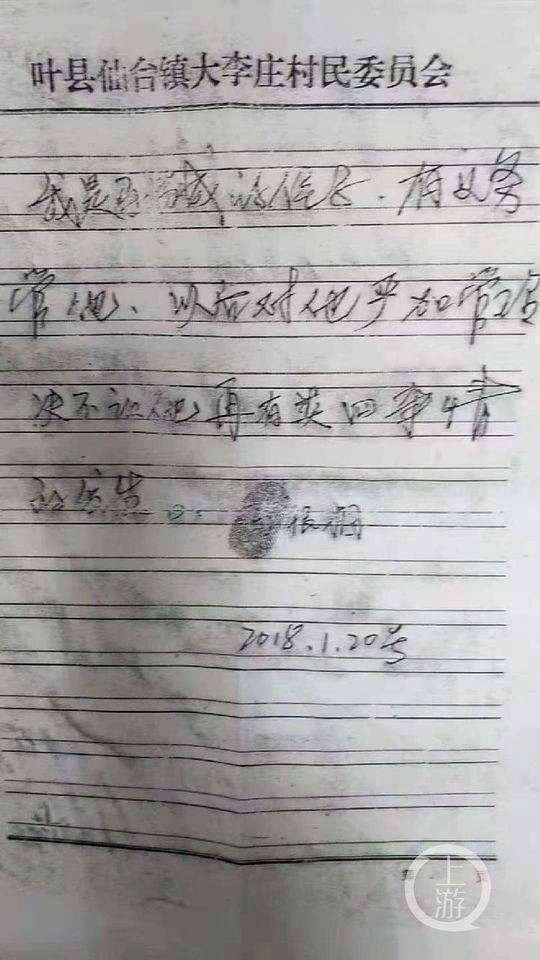 叶县仙台镇大李庄村民委员会
我是 的侄子.有义务
管他、以后对他严加管治
决不让他再有类似事情
的发生
根
2018.1.20号
上游